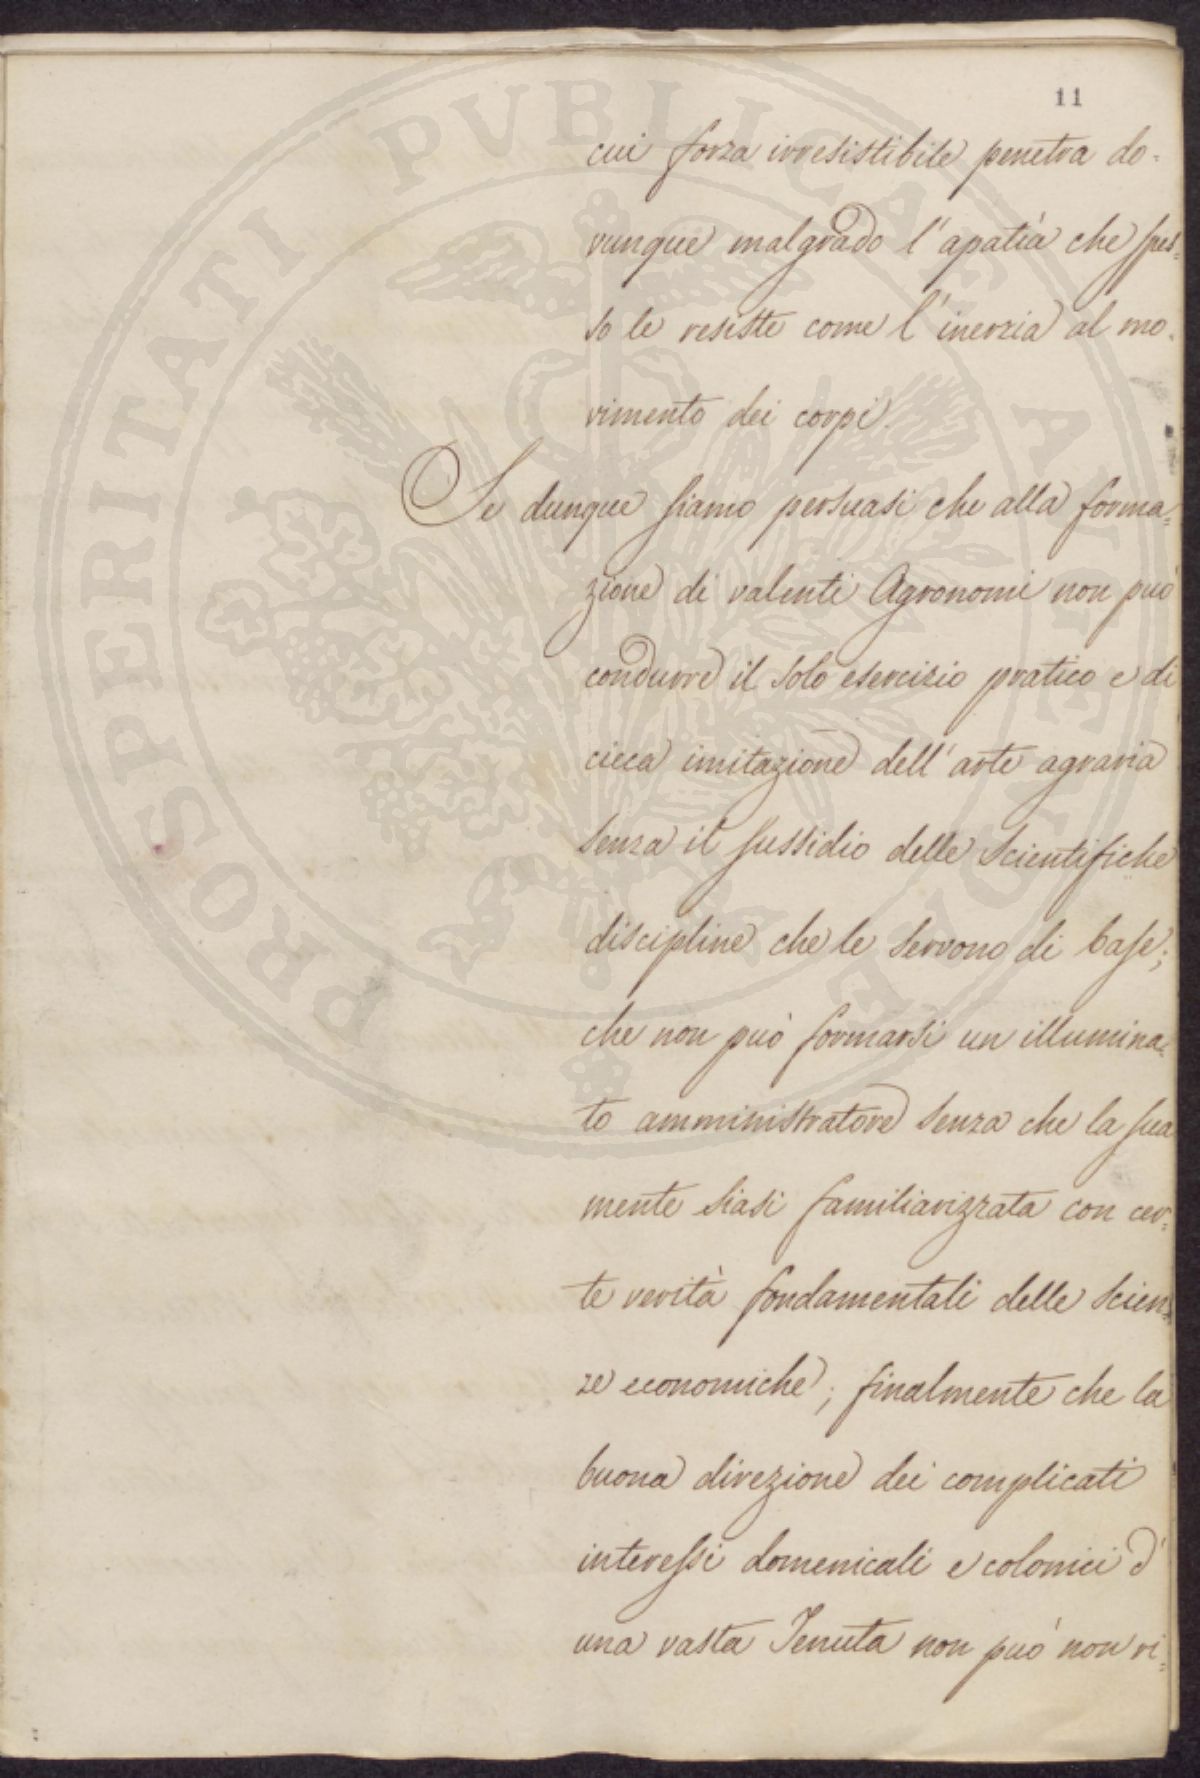 11
cui forza irresistibile penetra do=
vunque malgrado l'apatìa che spes=
so le resiste come l'inerzia al mo=
vimento dei corpi.
Se dunque siamo persuasi che alla forma=
zione di valenti Agronomi non può
condurre il solo esercizio pratico e di
cieca imitazione dell'arte agraria
senza il sussidio delle scientifiche
discipline che le servono di base;
che non può formarsi un illumina=
to amministratore senza che la sua
mente siasi familiarizzata con cer=
te verità fondamentali delle scien=
ze economiche; finalmente che la
buona direzione dei complicati
interessi domenicali e colonici d'
una vasta Tenuta non può non ri=
PROSPERITATI PVBLICAE AVGENDAE